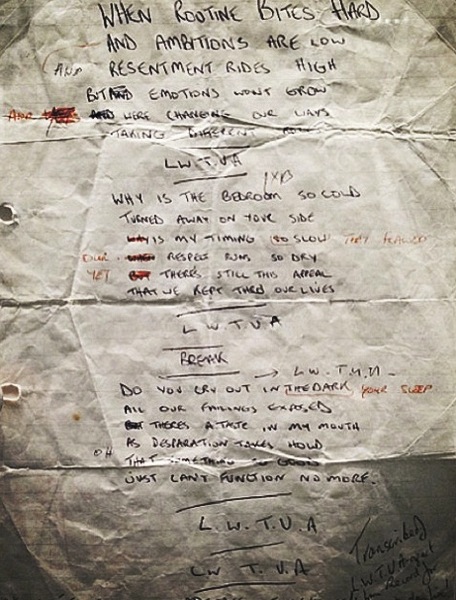 WHEN ROUTINE BITES HARD
AND AMBITIONS ARE LOW
AND RESENTMENT RIDES HIGH
BUT AND EMOTIONS WONT GROW
AND AND WERE CHANGING OUR WAYS
TAKING DIFFERENT
L.W.T.U.A
WHY IS THE BEDROOM SO COLD
TURNED AWAY ON YOUR SIDE
IS MY TIMING SO SLOW THAT FLAWED
OUR RESPECT RUNS SO DRY
YET BUT THERES STILL THIS APPEAL
THAT WE KEPT THRO OUR LIVES
L.W.T.U.A
BREAK
→ L.W.T.U.A
DO YOU CRY OUT IN THE DARK YOUR SLEEP
ALL OUR FAILINGS EXPOSED
BUT THERES A TASTE IN MY MOUTH
AS DESPARATION TAKES HOLD
OH THAT SOMETHING SO GOOD
JUST CANT FUNCTION NO MORE.
L.W.T.U.A
LW T.U.A
Transcribed
L.W.T.U.A